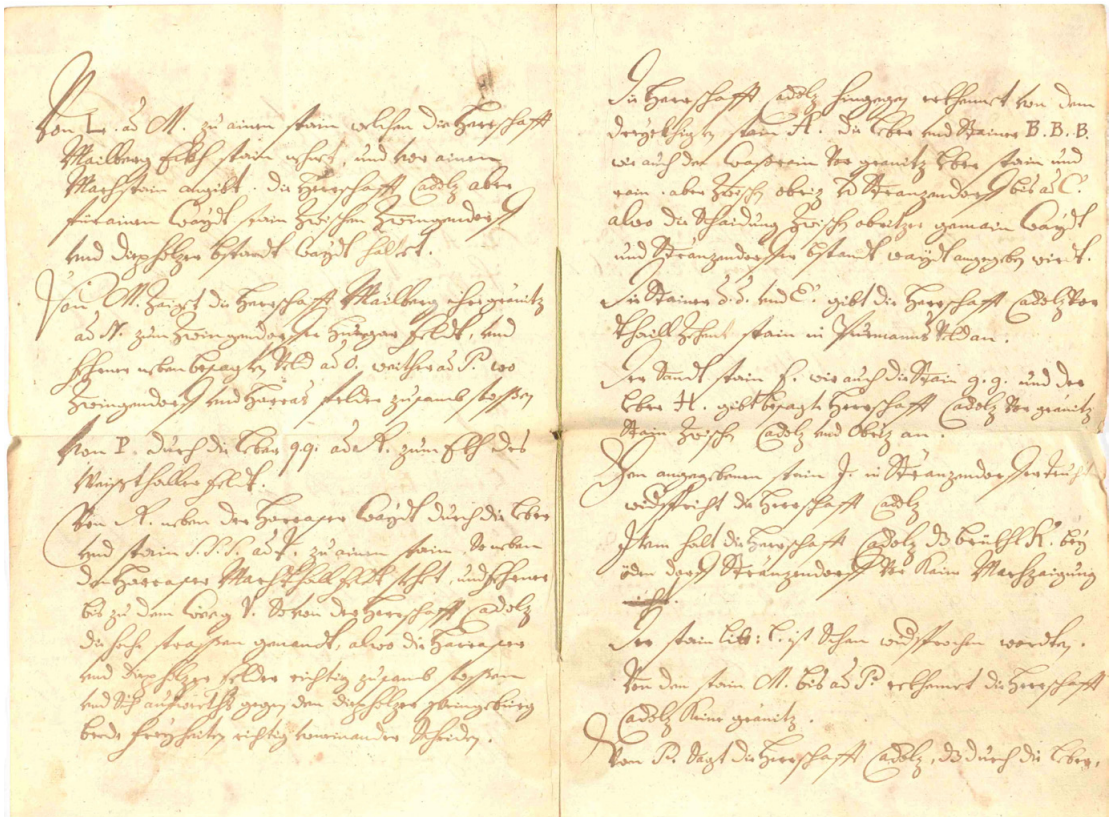 Von L. ad M. zu ainen stain welchen die Herrschafft
Mailberg Eckh stain nehnet, und vor ainen
Marchstain angibt. die Herrschafft Cadolz aber
für ainen Waydt stain zwischen Zwingendorff
und Diepholzer bstandt Waydt haltet.
Von M. zaiget die Herrschafft Mailberg ihre gränitz
ad N. zum Zwingendorffer Feldt, und
fehrner neben besagten Veld ad O. weither ad P. wo
Zwingendorff und Harras felder zusamb stossen
Von P. durch die Leber q.q. ad R. zum Ekh des
Waissthaller feldt.
Von R. neben der Harraser Waydt durch die Leber
und stain S.S.S. ad T. zu ainem stain. So neben
den Harraser Marchthall stehet, und fehrner
bis zu dem Weeg V. So von der Herrschafft Cadolz
die hoche strassen genandt, alwo die Harraser
und Diepholzer felder richtig zusamb stossen
und Sich aufwerths gegen den diepholzer
bede freyheiten richtig voneinander Scheiden.
Die Herrschafft Cadolz hingegen erkhennet von dem
dreyekhigten stain A. die Leber und Stainer B.B.B.
wie auch den Wassrain vor gränitz Leber stain und
rain. aber zwischen obriz und Stranzendorff bis ad C.
alwo die Schaidung zwischen obritzer gemain Waydt
und Stranzendorffer bstandt waydt angegeben wirdt.
Die Stainer D.D. und E. gibt die Herrschafft Cadolz vor
Thaill Zehent stain in Veld an.
Der Sandt stain F. wie auch die Stain g.g. und der
Leber H. gibt besagte Herrschafft Cadolz vor gränitz
Stain zwischen Cadolz und Obriz an.
Den angegebenen stain J. in Stranzendorffer
widspricht die Herrschafft Cadolz
Item halt die Herrschafft Cadolz dz brüchl K. bey
öden dorff Stranzendorff vor kaine Marchzaigung
Der stain Litt: L. ist Schon widsprochen worden.
Von den stain M. bis ad P. erkhennet die Herrschafft
Cadolz keine gränitz.
Von P. Sagt die Herrschafft Cadolz, dz durch die Leber,